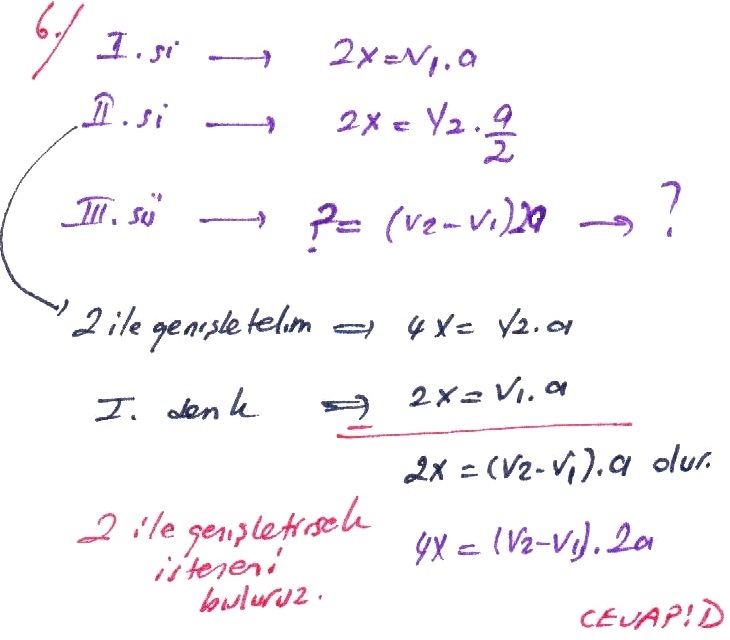 6.)
I. si → 2x = V₁.a
II. si → 2x = V2 . a/2
III. sü → ? = (V2 - V₁)2a → ?
2 ile genişletelim ⇒ 4x = V2.a
I. denk ⇒ 2x = V₁.a
2x = (V2 - V₁).a olur.
2 ile genişletirsek
isteneni
buluruz.
4x = (V2 - V₁). 2a
CEVAP! D